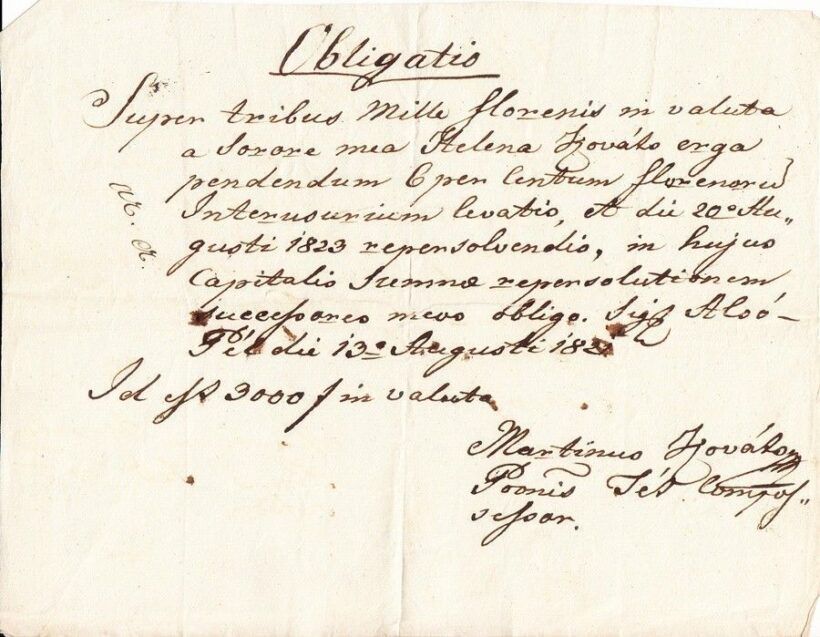 Obligatio
Super tribus Mille florenis in valuta
a Sorore mea Helena Kováts erga
pendendum 6 per Centum florenorū
Interusurium levatis, et die 20ª Au„
gusti 1823 repersolvendis, in hujus
Capitalis Summæ repersolutionem
successores meos obligo. Sigl Alsó-
Pél die 13ª Augusti 182
Id est 3000 f in valuta
Martinus Kováts
Possnis Pél Compos„
sessor.